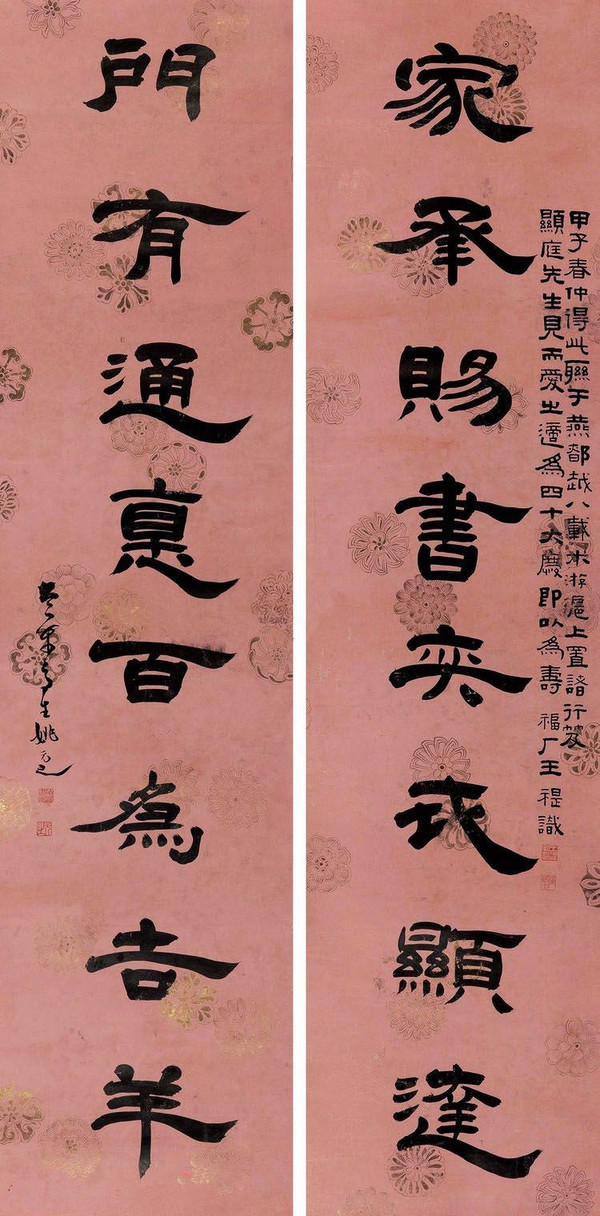 家承賜書奕代顯達
甲子春仲得此聯于燕都越八載來游滬上置諸行笈
顯庭先生見而愛之適為四十大慶即以為壽 福厂王禔識
門有通惪百為吉羊
竹葉亭生姚元之